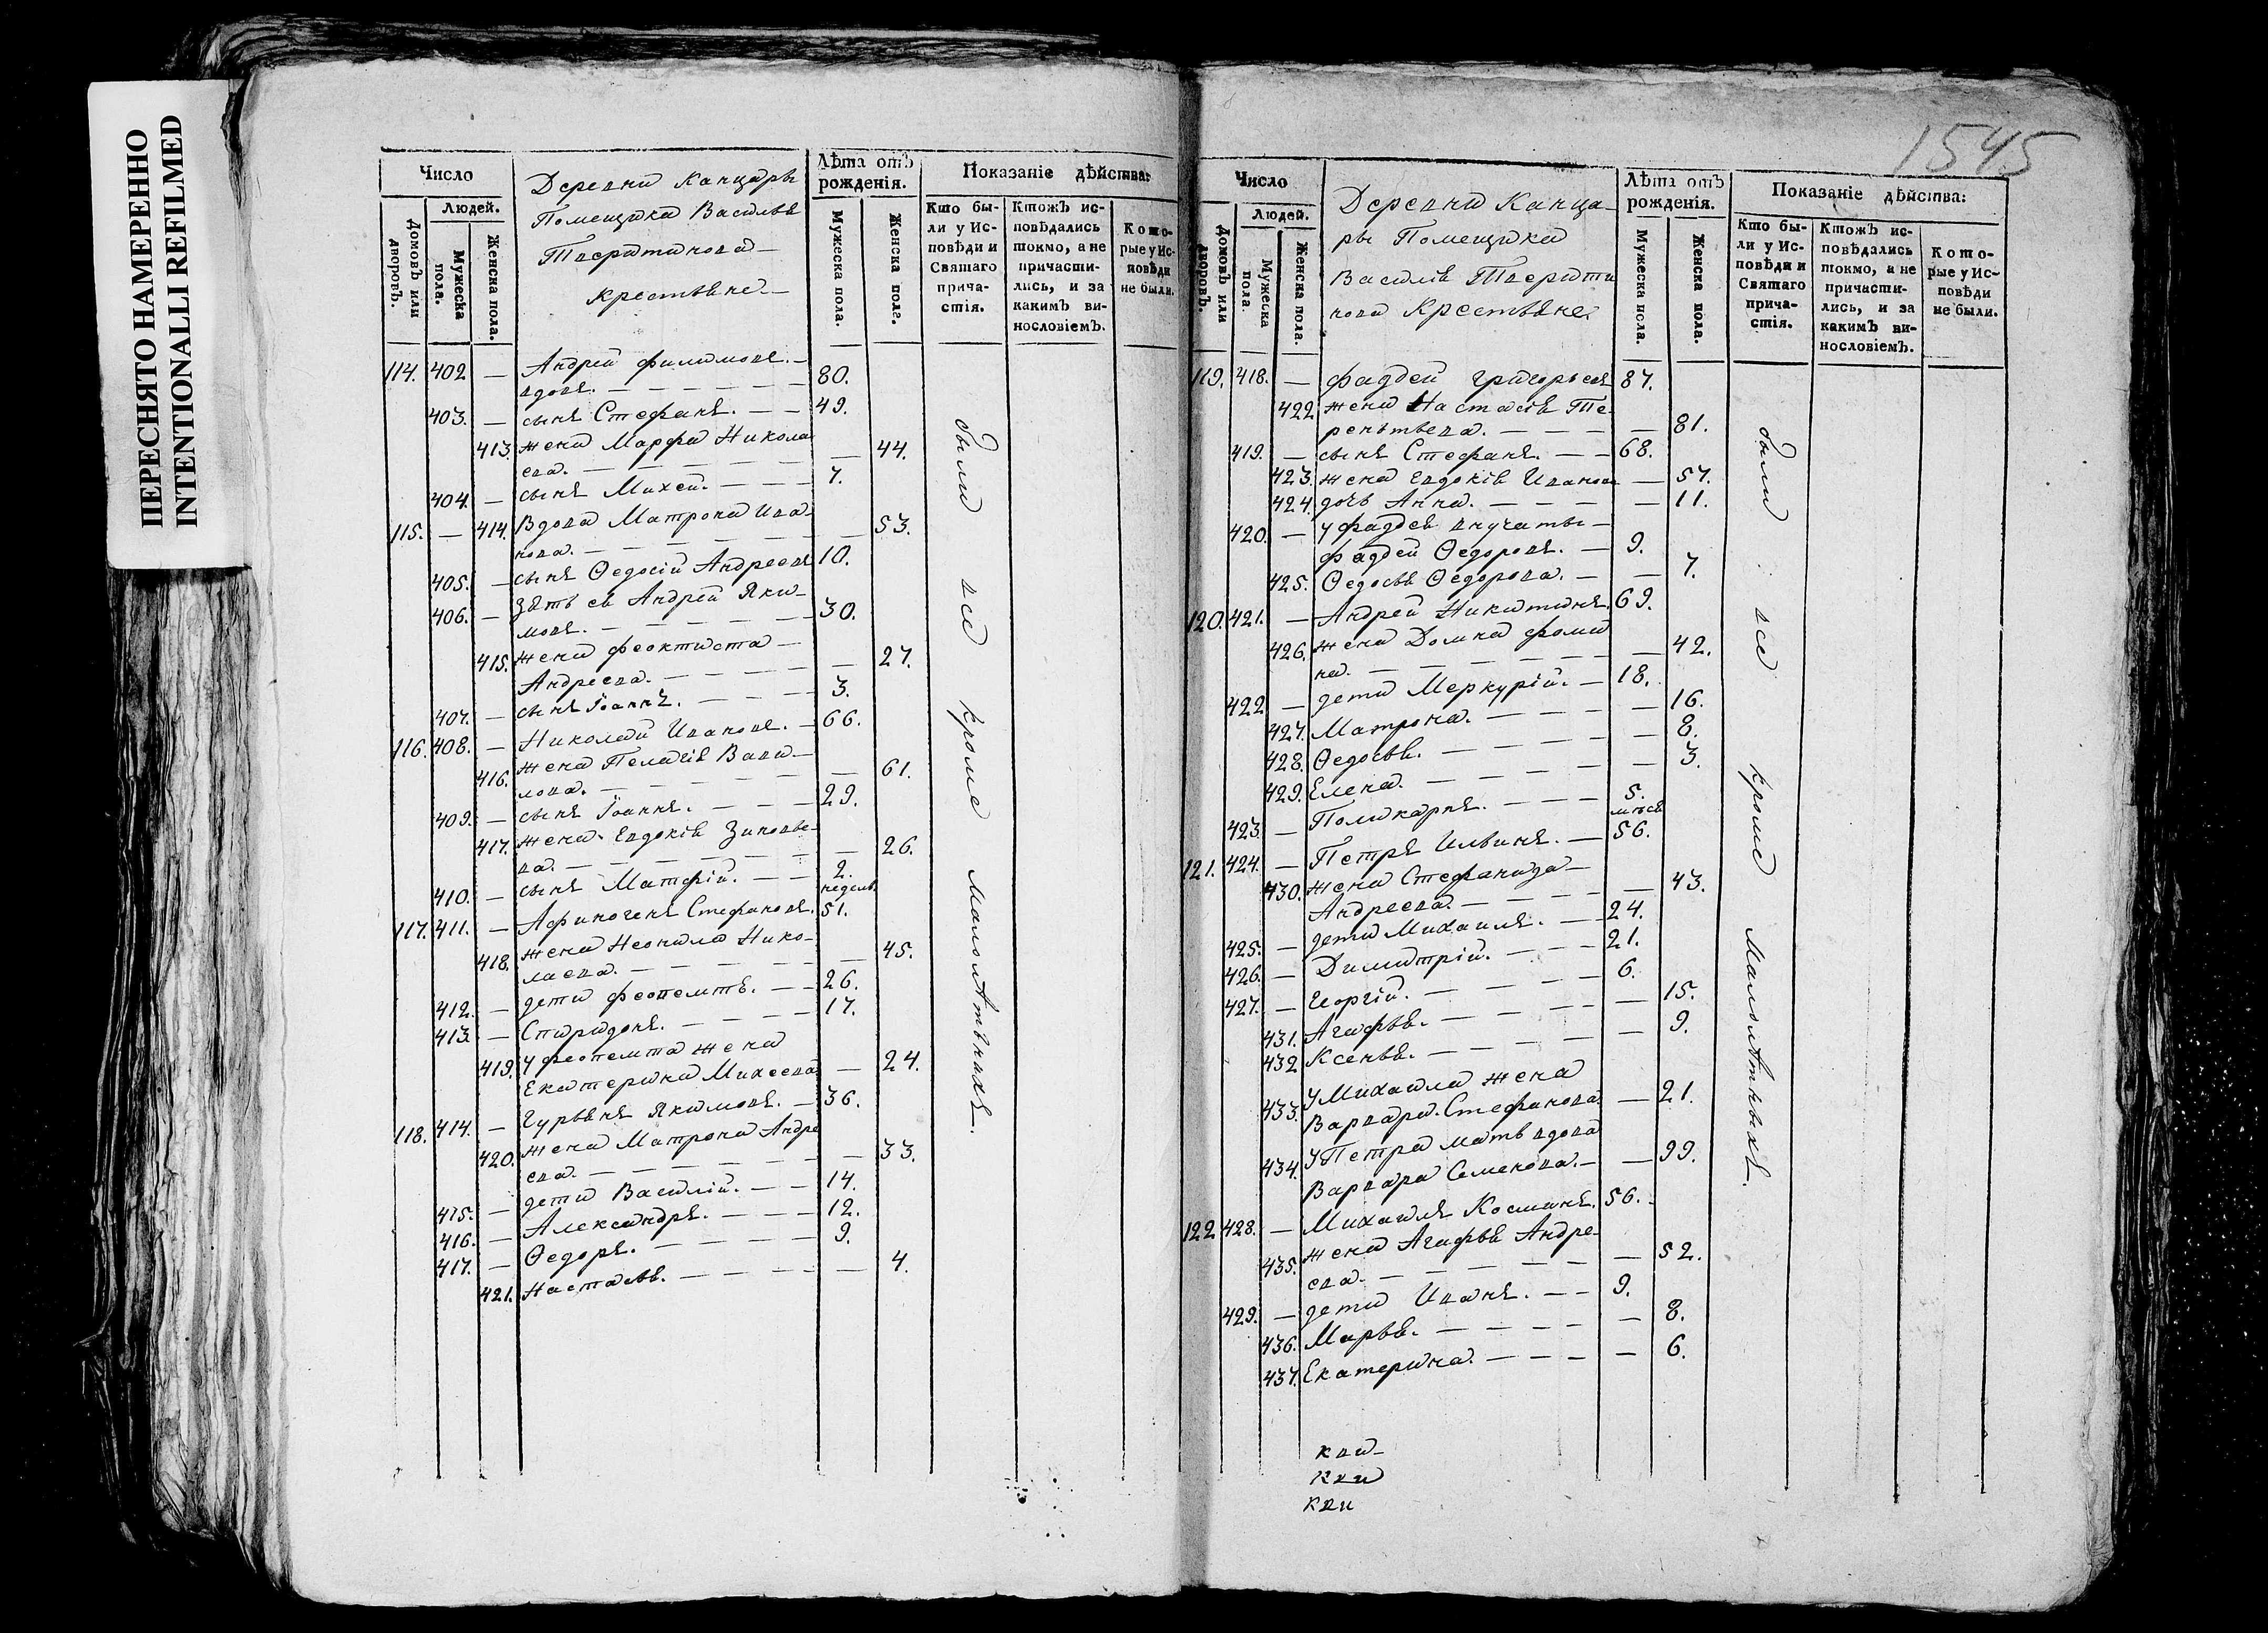 ПЕРЕСНЯТО НАМЕРЕННО
INTENTIONALLI REFILMED
1545
Число
Людей.
Домовъ или дворовъ.
Мужеска пола.
Женска пола.
Деревни Канцары
Помещика Василья
Тверитинова
крестьяне
Лѣта отъ рожденія.
Мужеска пола.
Женска пола.
Показаніе дѣйства:
Кто бы-
ли у Ис-
повѣди и
Святаго
прича-
стія.
Ктожъ ис-
повѣдались
токмо, а не
причасти-
лись, и за
какимъ ви-
нословіемъ.
Кото-
рые у Ис-
повѣди
не были.
114. 402 — Андрей Филимовъ. —
вдовъ. — 80.
403. — сынъ Стефанъ. — 49.
413. жена Марфа Никола
ева. — 44.
404. — сынъ Михей. — 7.
115. — 414. Вдова Матрона Ива-
нова. — 53.
405. — сынъ Ѳедосій Андреевъ 10.
406. — Зять ея Андрей Яки-
мовъ. — 30.
415. жена феоктиста —
Андреева. — 27.
407. — сынъ Іоаннъ. — 3.
116. 408. — Николай Ивановъ. — 66.
416. жена Пелагія Вави-
лова. — 61.
409. — сынъ Іоаннъ. — 29.
417. жена Евдокія Зиновье-
ва. — 26.
410. — сынъ Матфій. — 2.
недель.
117. 411. — Афиногенъ Стефановъ. 51.
418. жена Неонила Нико-
лаева. — 45.
412. — дети феопемтъ. — 26.
413. — Спиридонъ. — 17.
419. У феопемта жена
Екатерина Михеева — 24.
118. 414. — Гурьянъ Якимовъ. — 36.
420. жена Матрона Андре
ева. — 33.
415. — дети Василій. — 14.
416. — Александръ. — 12.
417. — Ѳедоръ. — 9.
421. Настасья. — 4.
были все кроме малолѣтныхъ.
Число
Людей.
Домовъ или дворовъ.
Мужеска пола
Женска пола.
Деревни Канца-
ры Помещика
Василія Тверити
нова Крестьяне
Лѣта отъ рожденія.
Мужеска пола.
Женска пола.
Показаніе дѣйства:
Кто бы-
ли у Ис-
повѣди и
Святаго
прича-
стія.
Ктожъ ис-
повѣдались
токмо, а не
причасти-
лись, и за
какимъ ви-
нословіемъ.
Кото-
рые у Ис-
повѣди
не были.
119. 418. — фаддей григорьевъ 87.
422 жена Настасія Те-
рентьева. — 81.
419. — сынъ Стефанъ. — 68.
423. жена Евдокія Иванова — 57.
424. дочь Анна. — 11.
420. — У фаддея внучаты —
фаддей Ѳедоровъ. — 9.
425. Ѳедосья Ѳедорова. — 7.
120. 421. — Андрей Никитинъ. 69.
426. жена Домна фоми
на. — 42.
422 — дети Меркурій. — 18.
427. Матрона. — 16.
428. Ѳедосья. — 8.
429. Елена. — 3.
423. — Поликарпъ. — 5.
месяц
121. 424. — Петръ Ильинъ. — 56.
430. жена Стефанида —
Андреева. — 43.
425. — дети Михаилъ. — 24.
426. — Димитрій. — 21.
427. — Георгій. — 6.
431. Агафья. — 15.
432 Ксенья. — 9.
433. У Михаила жена
Варвара Стефанова — 21.
434. У Петра мать вдова
Варвара Семенова. — 99.
122 428. — Михаилъ Косминъ. 56.
435. жена Агафья Андре-
ева. — 52.
429. — дети Иванъ. — 9.
436. Марья. — 8.
437. Екатерина. — 6.
были все кроме малолѣтныхъ.